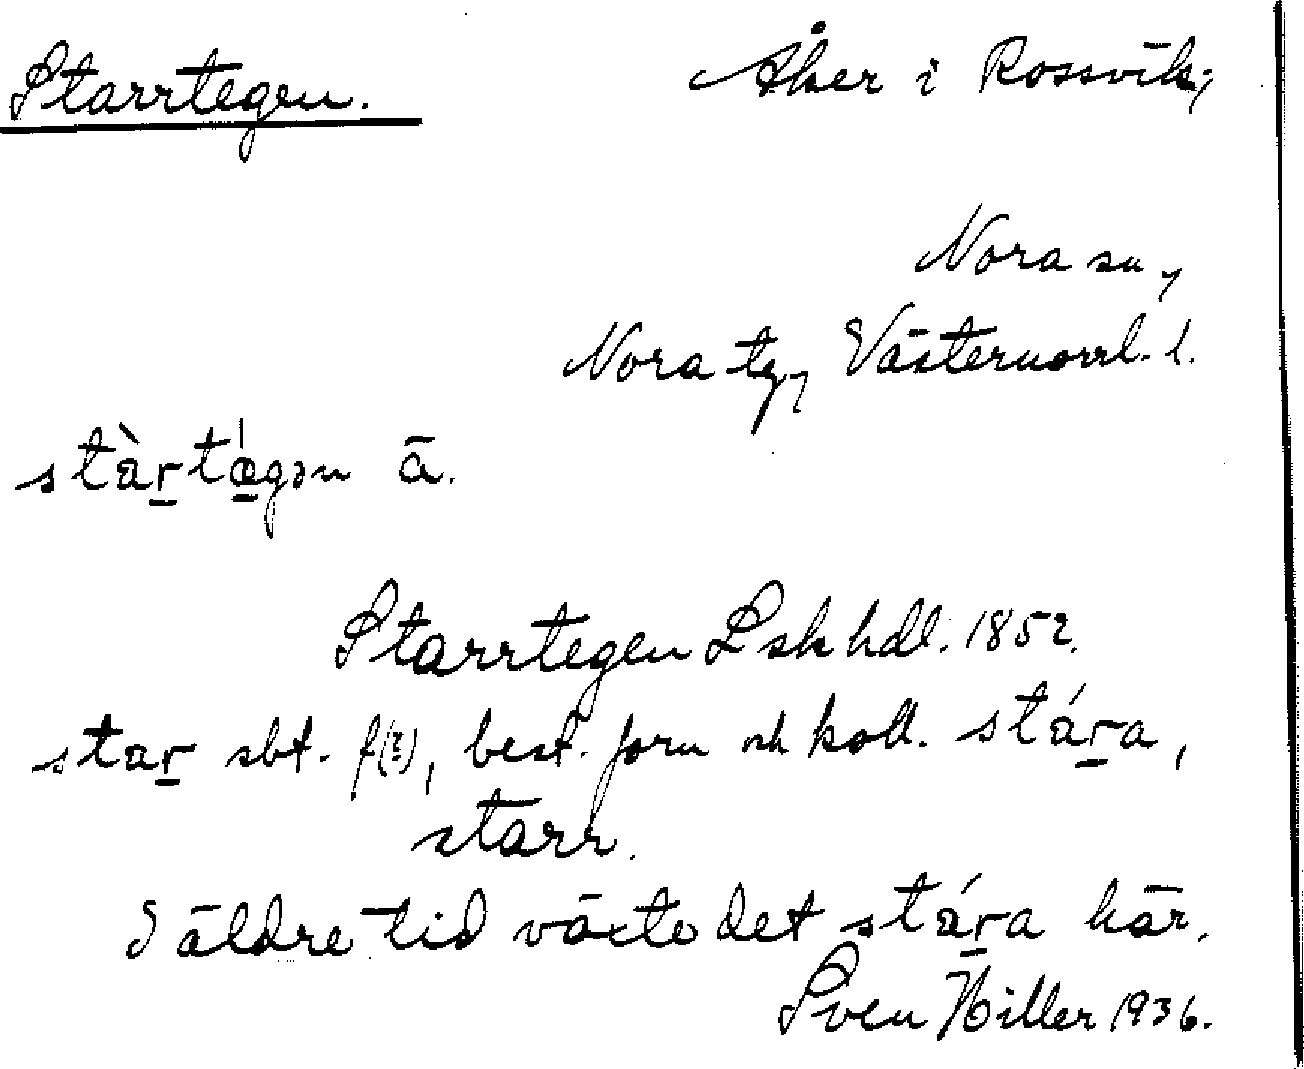 Starrtegen. Åker i Rossvik,
Nora sn,
Nora tg, Västernorrl. l.
stàr̠tǽ̠gən ā.
Starrtegen Lskhdl. 1852.
star̠ sbt. f(?), best. form och koll. stár̠a,
starr.
I äldre tid växte det stár̠a här.
Sven Hiller 1936.